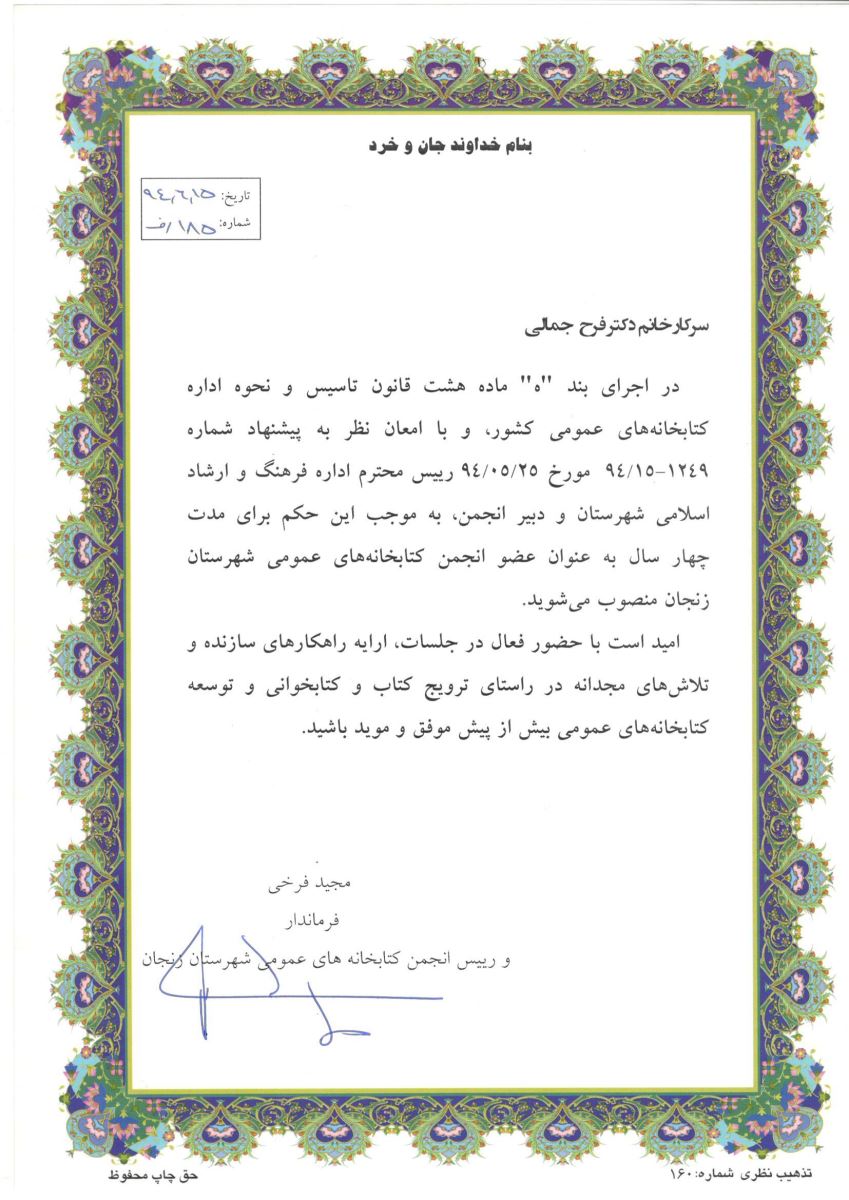 بنام خداوند جان و خرد
تاریخ: ٩٤,٦,١٥
شماره: ١٨٥/ف
سرکارخانم دکترفرح جمالی
در اجرای بند "ه" ماده هشت قانون تاسیس و نحوه اداره
کتابخانه‌های عمومی کشور، و با امعان نظر به پیشنهاد شماره
١٢٤٩-٩٤/١٥ مورخ ٩٤/٠٥/٢٥ رییس محترم اداره فرهنگ و ارشاد
اسلامی شهرستان و دبیر انجمن، به موجب این حکم برای مدت
چهار سال به عنوان عضو انجمن کتابخانه‌های عمومی شهرستان
زنجان منصوب می‌شوید.
امید است با حضور فعال در جلسات، ارایه راهکارهای سازنده و
تلاش‌های مجدانه در راستای ترویج کتاب و کتابخوانی و توسعه
کتابخانه‌های عمومی بیش از پیش موفق و موید باشید.
مجید فرخی
فرماندار
و رییس انجمن کتابخانه های عمومی شهرستان زنجان
حق چاپ محفوظ
تذهیب نظری شماره: ۱۶۰